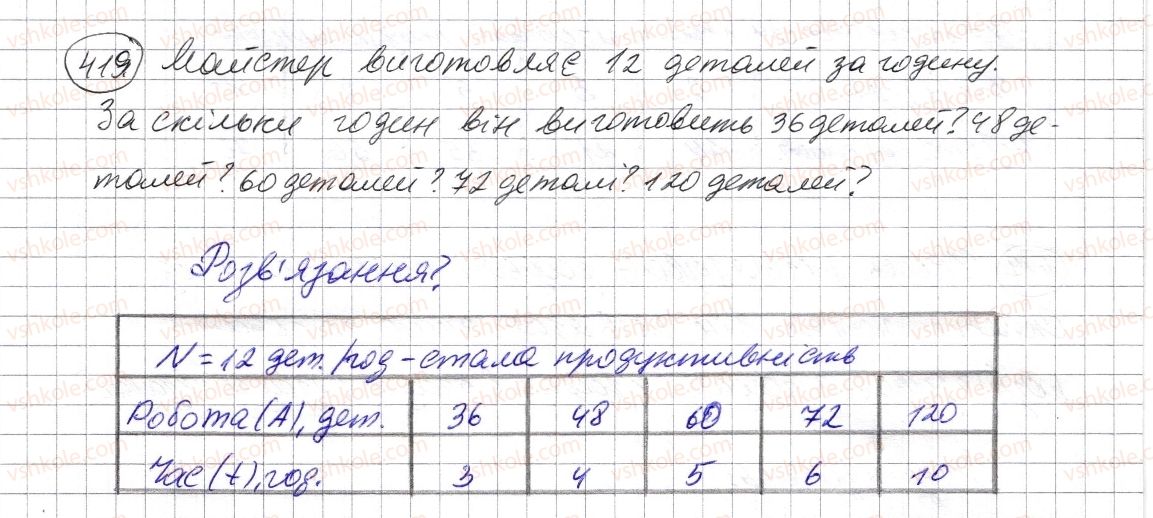 419 Майстер виготовляє 12 деталей за годину.
За скільки годин він виготовить 36 деталей? 48 де-
талей? 60 деталей? 72 деталі? 120 деталей?
Розв'язання?
N = 12 дет./год - стала продуктивність
Робота (A), дет. 36 48 60 72 120
Час (t), год. 3 4 5 6 10
vshkole.com